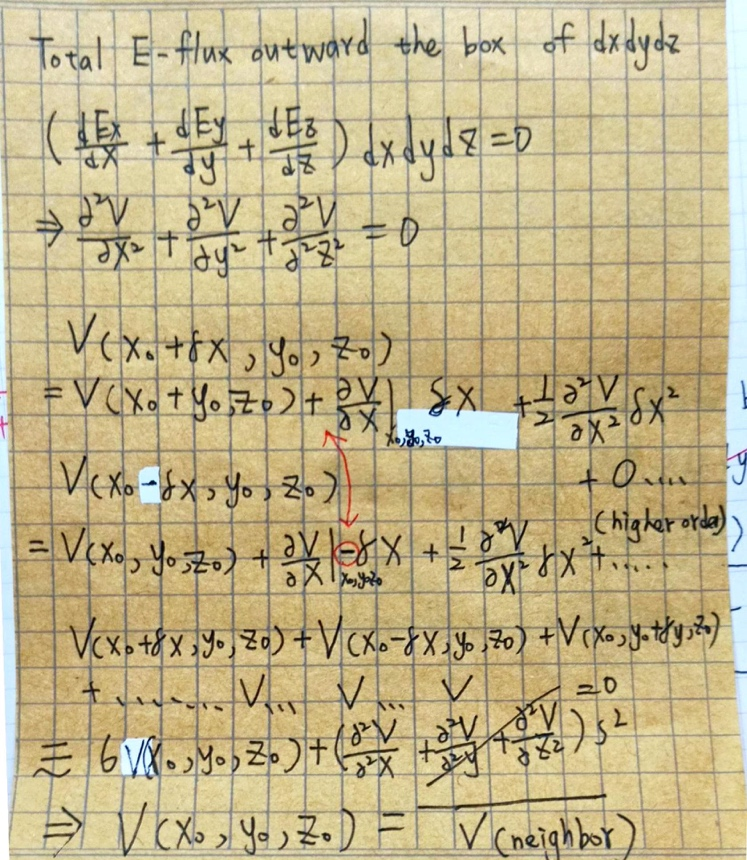 Total E-flux outward the box of dxdydz
(dEx/dx + dEy/dy + dEz/dz) dxdydz = 0
⇒ ∂²V/∂x² + ∂²V/∂y² + ∂²V/∂²z² = 0
V(x₀+δx, y₀, z₀)
= V(x₀+y₀,z₀) + ∂V/∂x|x₀,y₀,z₀ δx + 1/2 ∂²V/∂x² δx²
+ 0....
V(x₀-δx, y₀, z₀)
(higher order)
= V(x₀, y₀,z₀) + ∂V/∂x|x₀,y₀z₀ -δx + 1/2 ∂²V/∂x² δx² + .....
V(x₀+δx, y₀, z₀) + V(x₀-δx, y₀, z₀) + V(x₀, y₀+δy, z₀)
+ ........ V... V... V = 0
= 6V(x₀, y₀, z₀) + (∂²V/∂²x + ∂²V/∂²y + ∂²V/∂z²) δ²
⇒ V(x₀, y₀, z₀) = V(neighbor)